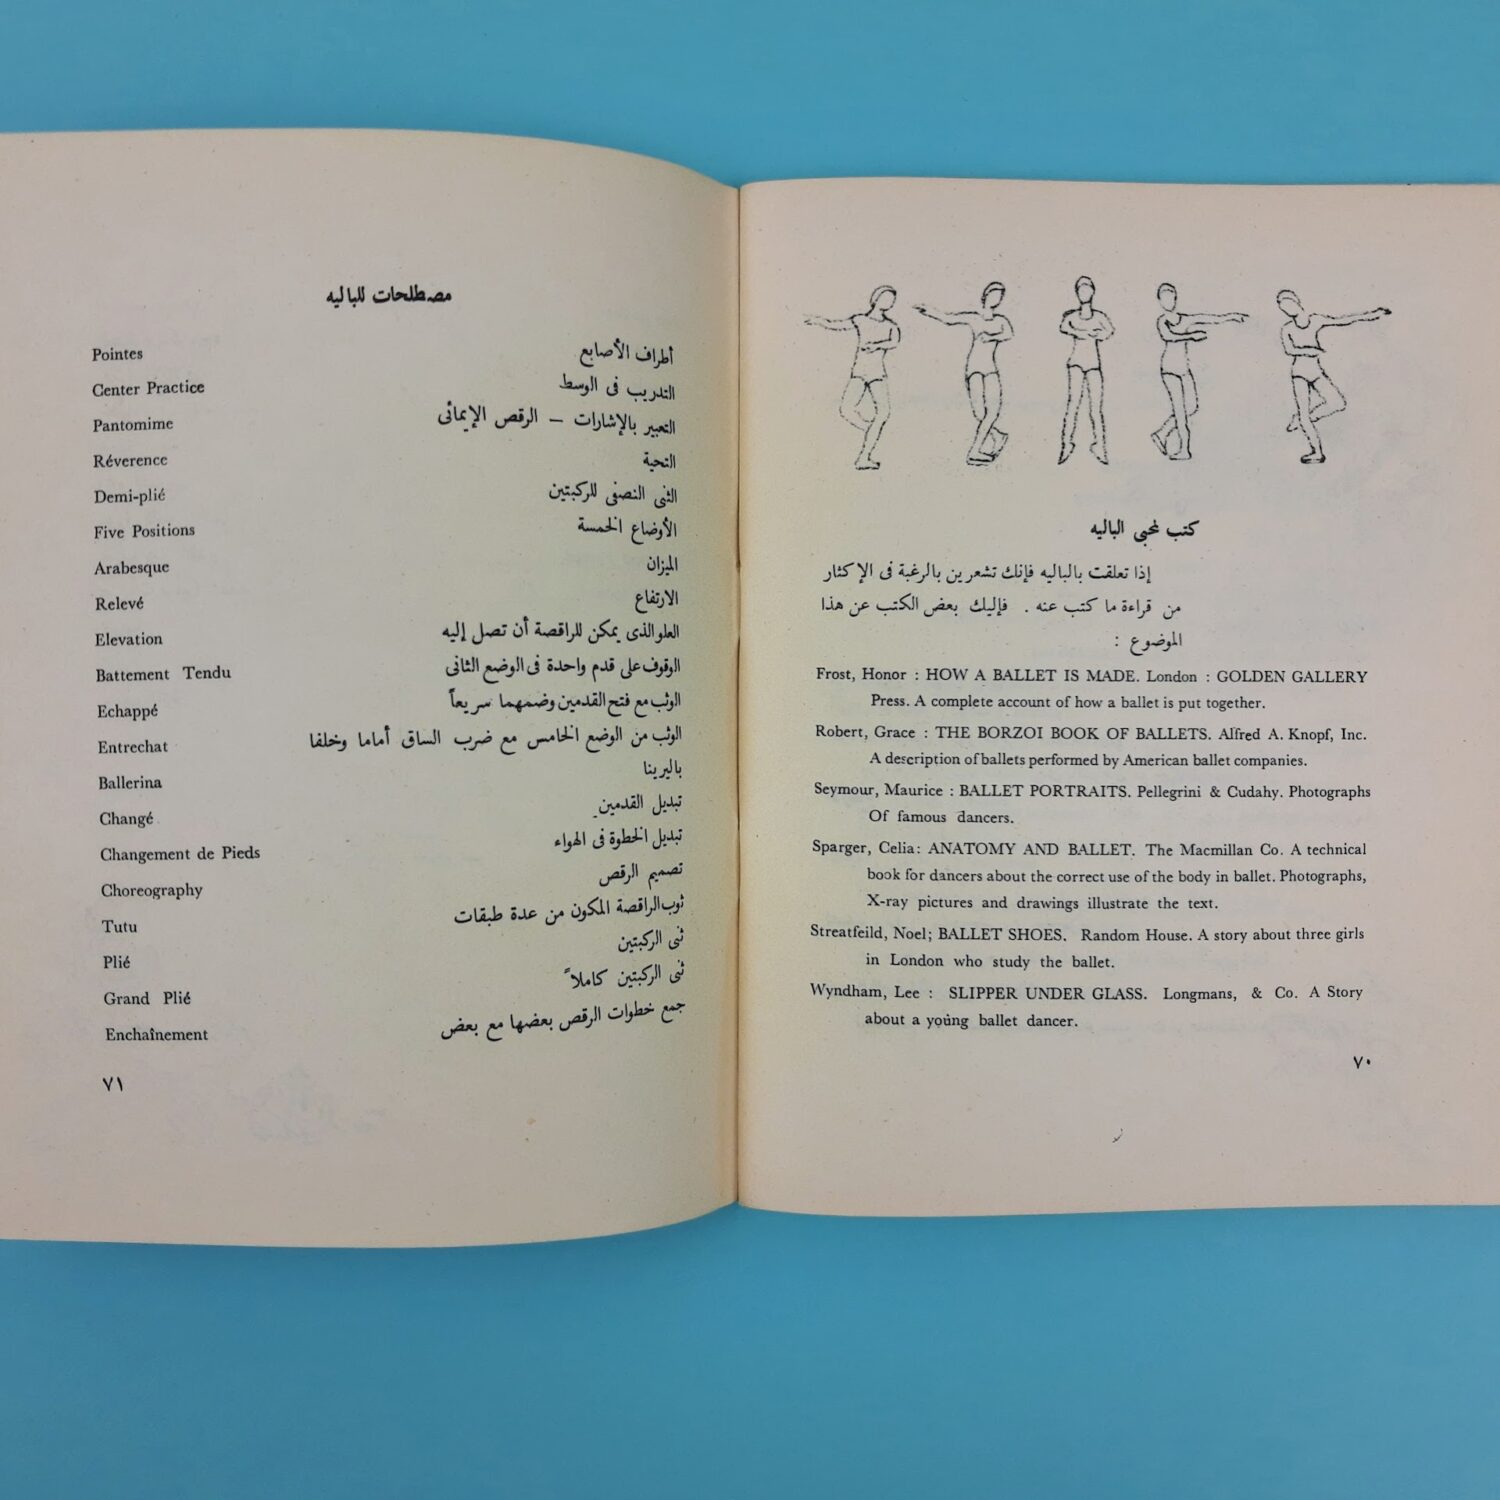 كتب لمحبي الباليه
إذا تعلقت بالباليه فإنك تشعرين بالرغبة فى الإكثار
من قراءة ما كتب عنه . فإليك بعض الكتب عن هذا
الموضوع :
Frost, Honor : HOW A BALLET IS MADE. London : GOLDEN GALLERY
Press. A complete account of how a ballet is put together.
Robert, Grace : THE BORZOI BOOK OF BALLETS. Alfred A. Knopf, Inc.
A description of ballets performed by American ballet companies.
Seymour, Maurice : BALLET PORTRAITS. Pellegrini & Cudahy. Photographs
Of famous dancers.
Sparger, Celia: ANATOMY AND BALLET. The Macmillan Co. A technical
book for dancers about the correct use of the body in ballet. Photographs,
X-ray pictures and drawings illustrate the text.
Streatfeild, Noel; BALLET SHOES. Random House. A story about three girls
in London who study the ballet.
Wyndham, Lee : SLIPPER UNDER GLASS. Longmans, & Co. A Story
about a young ballet dancer.
٧٠
مصطلحات للباليه
Pointes أطراف الأصابع
Center Practice التدريب فى الوسط
Pantomime التعبير بالإشارات – الرقص الإيمائى
Réverence التحية
Demi-plié الثنى النصفى للركبتين
Five Positions الأوضاع الخمسة
Arabesque الميزان
Relevé الارتفاع
Elevation العلو الذى يمكن للراقصة أن تصل إليه
Battement Tendu الوقوف على قدم واحدة فى الوضع الثانى
Echappé الوثب مع فتح القدمين وضمهما سريعاً
Entrechat الوثب من الوضع الخامس مع ضرب الساق أماما وخلفا
Ballerina باليرينا
Changé تبديل القدمين
Changement de Pieds تبديل الخطوة فى الهواء
Choreography تصميم الرقص
Tutu ثوب الراقصة المكون من عدة طبقات
Plié ثنى الركبتين
Grand Plié ثنى الركبتين كاملاً
Enchaînement جمع خطوات الرقص بعضها مع بعض
٧١